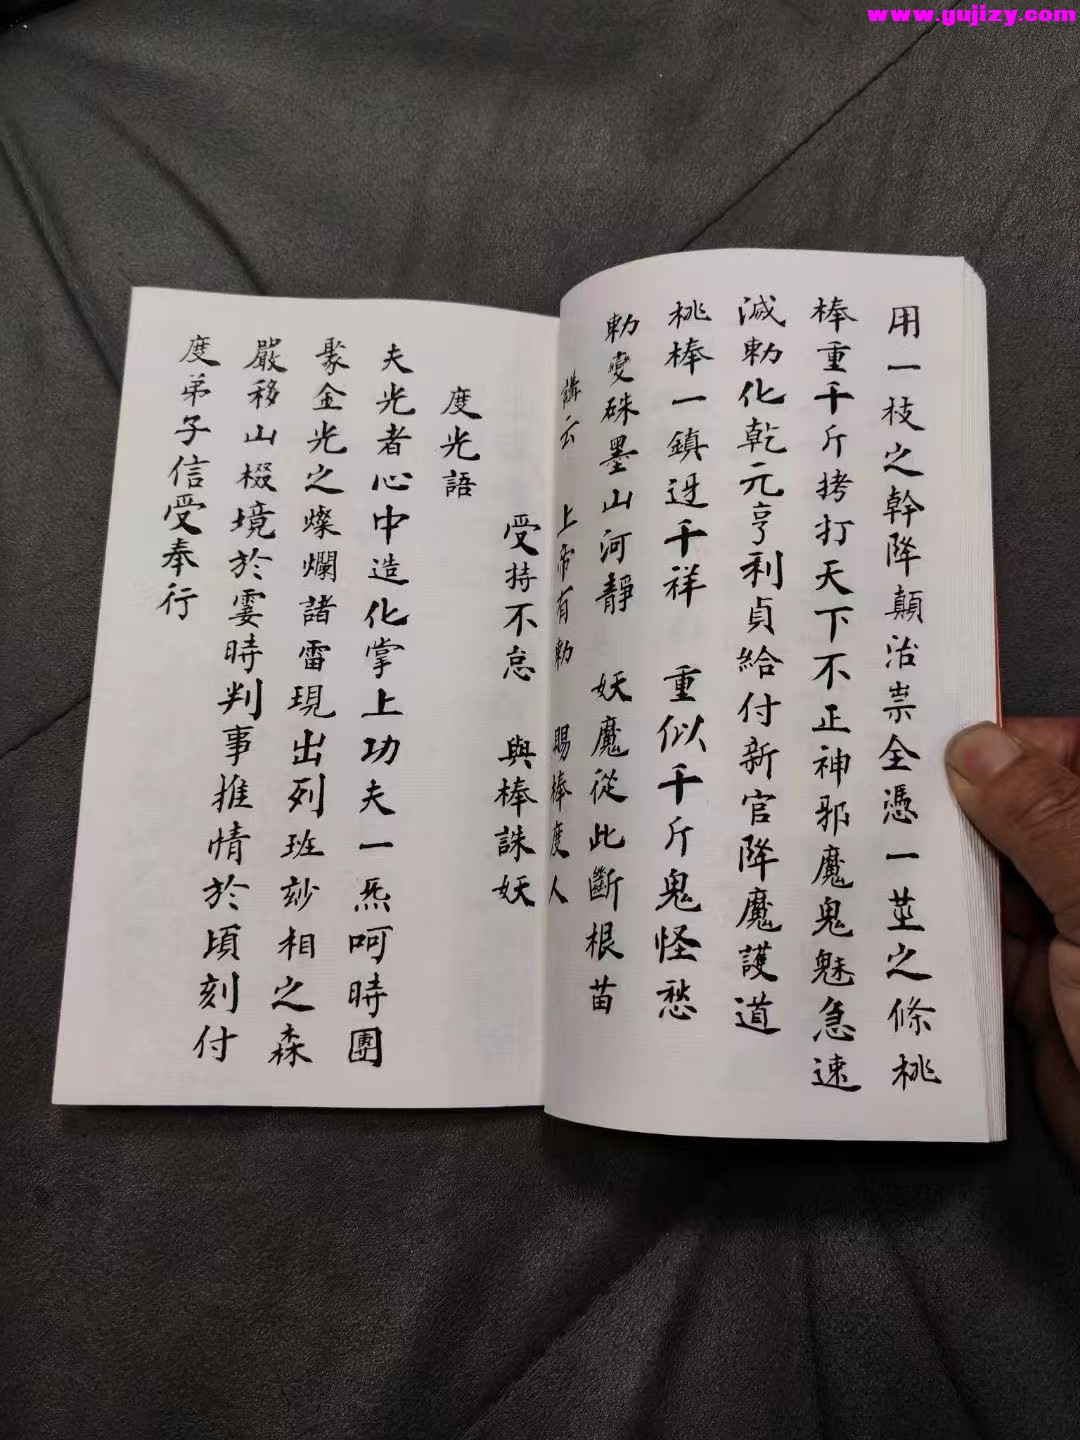 www.gujizy.com
用一枝之幹降顛治祟全憑一莖之條桃
棒重千斤拷打天下不正神邪魔鬼魅急速
滅勅化乾元亨利貞給付新官降魔護道
桃棒一鎮迓千祥　重似千斤鬼怪愁
勅變硃墨山河靜　妖魔從此斷根苗
講云　上帝有勅　賜棒度人
受持不怠　與棒誅妖
度光語
夫光者心中造化掌上功夫一炁呵時團
聚金光之燦爛諸雷現出列班玅相之森
嚴移山樶境於霎時判事推情於頃刻付
度弟子信受奉行